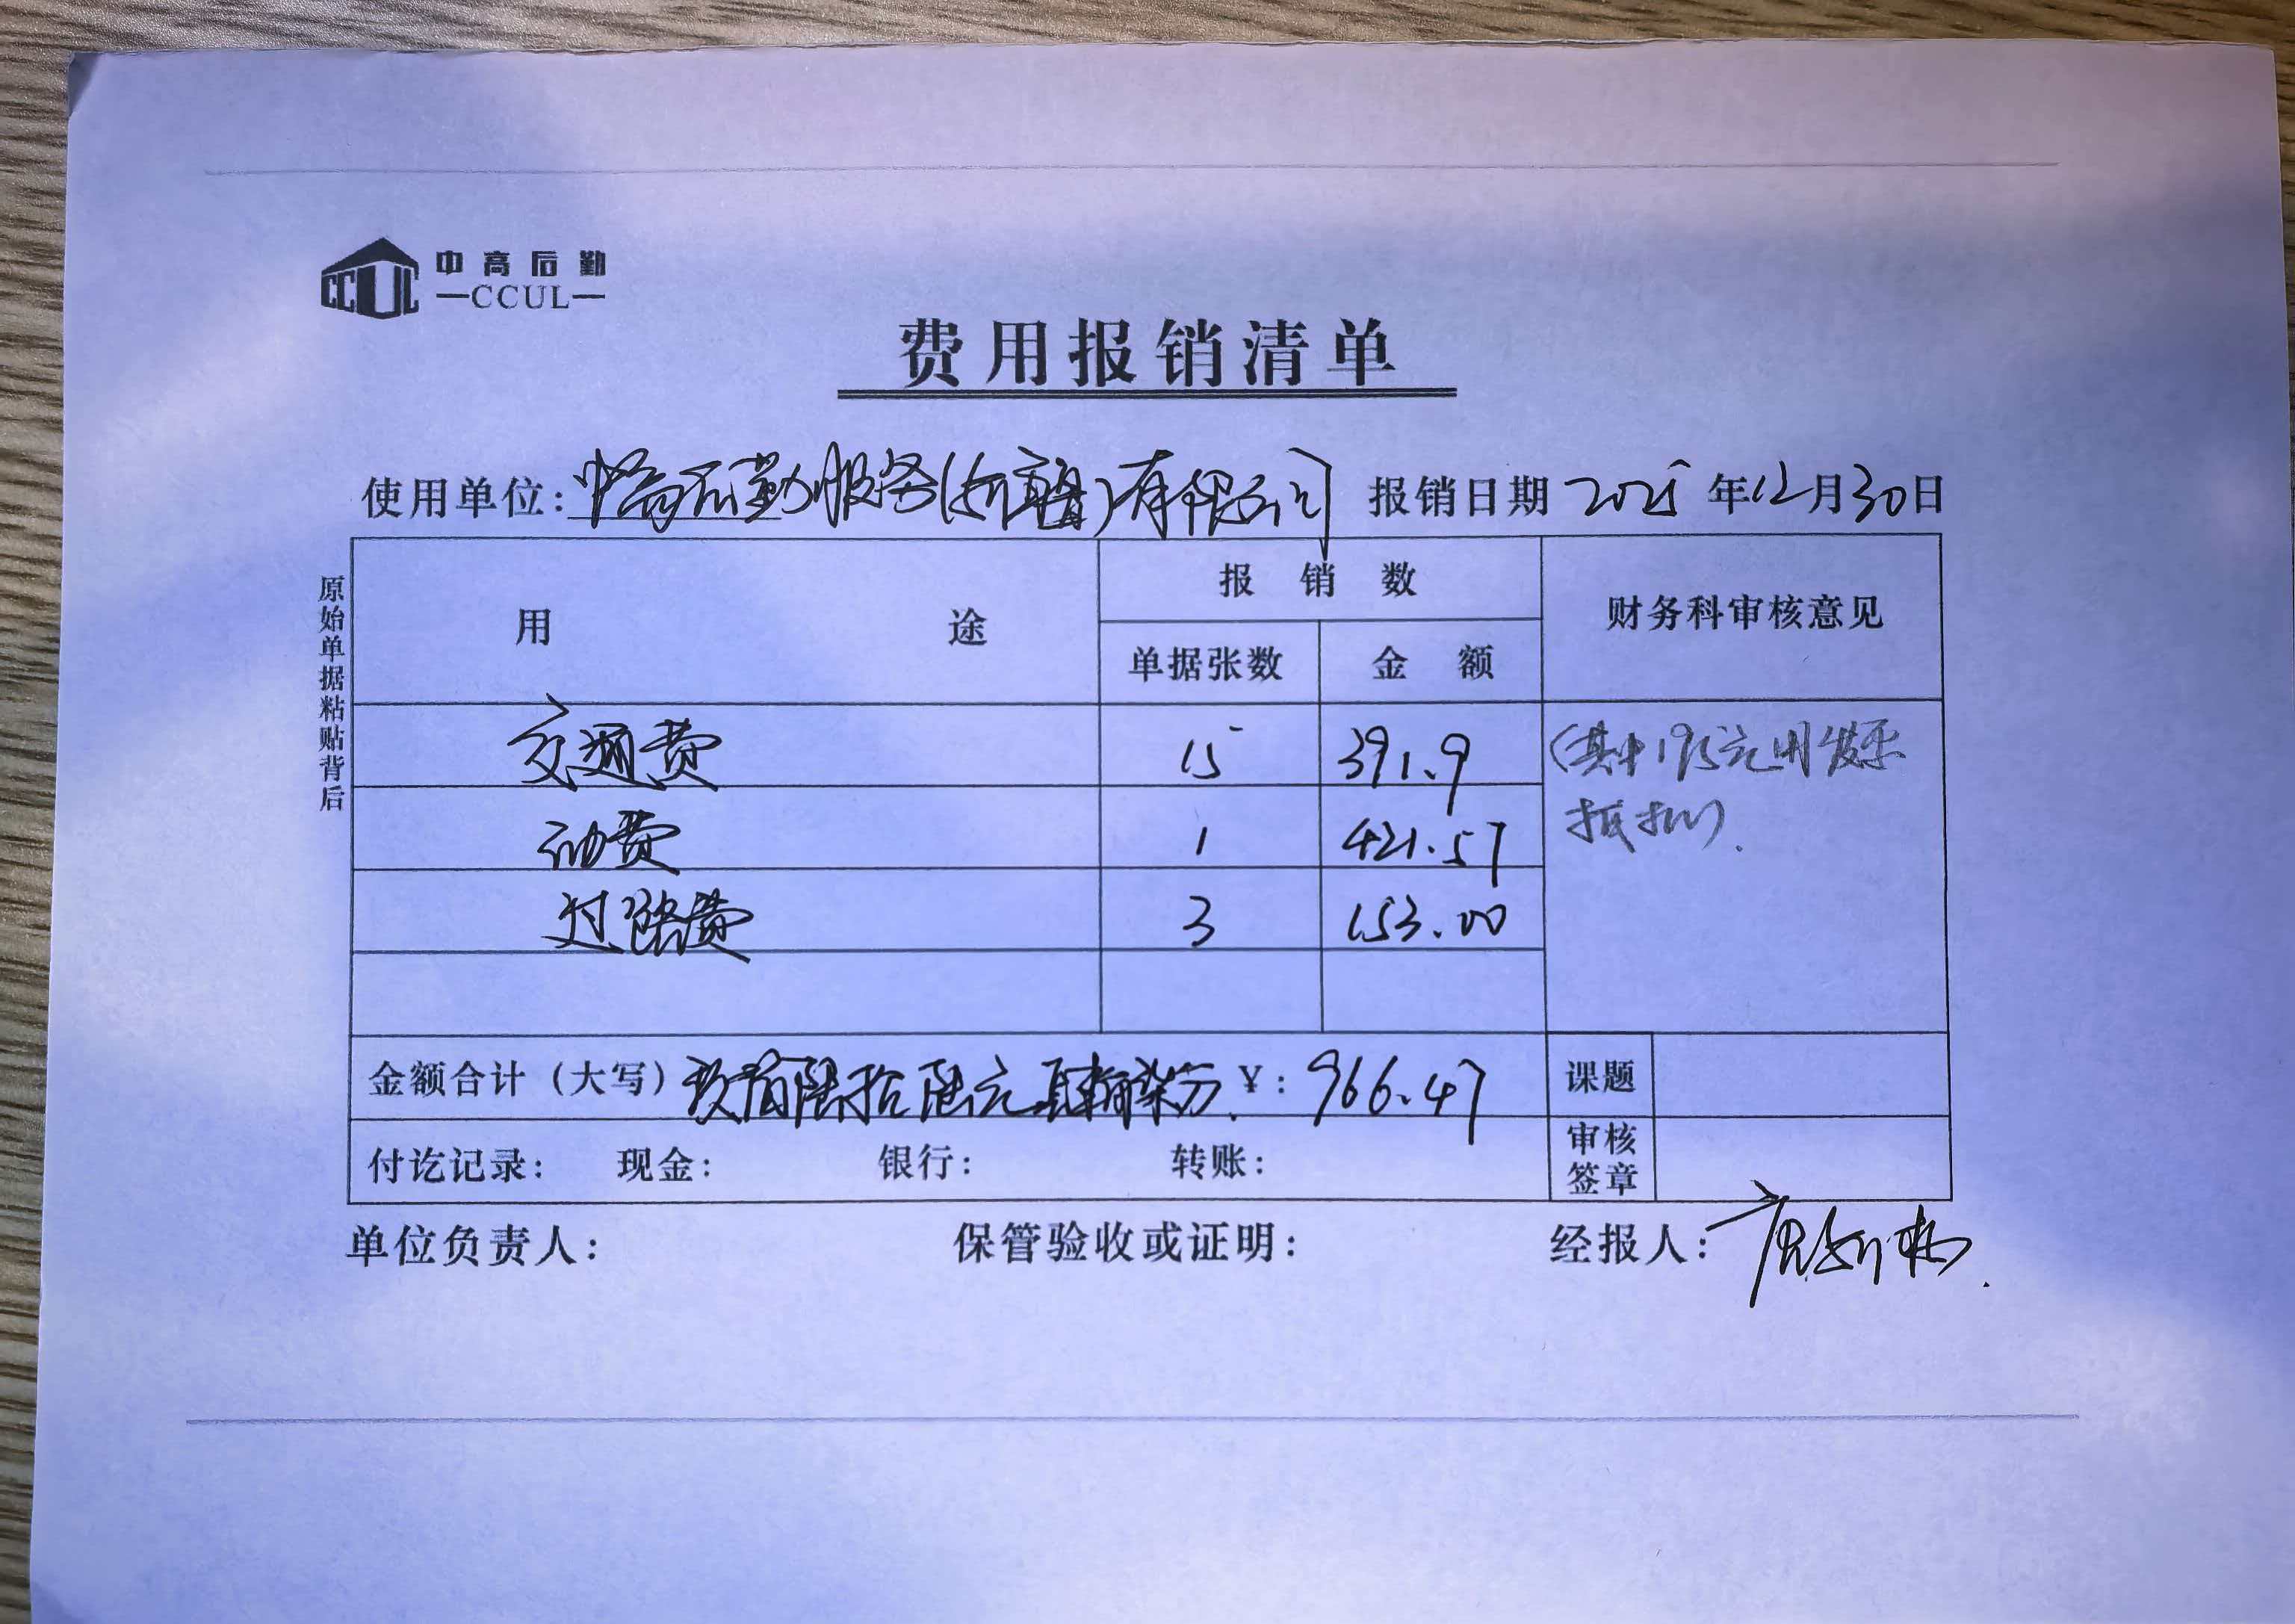 中高后勤
—CCUL—
CCUL
费用报销清单
使用单位: 中高后勤服务()有限公司 报销日期 2025 年 12 月 30 日
原始单据粘贴背后
用 途 报 销 数 财务科审核意见
单据张数 金 额
交通费 15 391.9 (其中195元用发票
抵扣).
油费 1 421.57
过路费 3 153.00
金额合计（大写）玖佰陆拾陆元肆角柒分 ¥: 966.47 课题
付讫记录: 现金: 银行: 转账: 审核
签章
单位负责人: 保管验收或证明: 经报人: